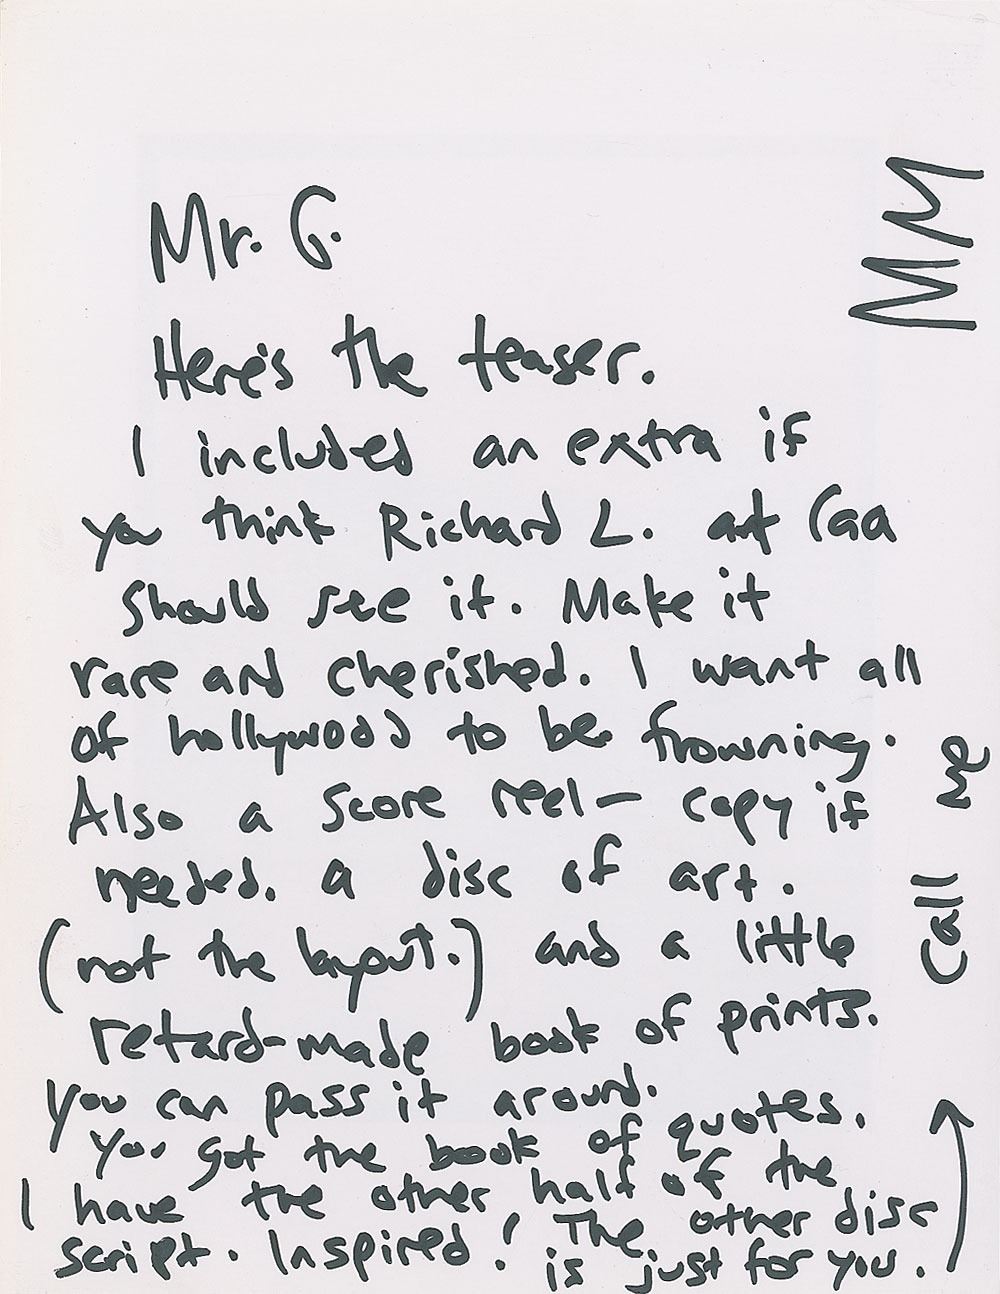 Mr. G.
Here's the teaser.
I included an extra if
you think Richard L. at Caa
should see it. Make it
rare and cherished. I want all
of hollywood to be frowning.
Also a score reel— copy if
needed. a disc of art.
(not the layout.) and a little
retard-made book of prints.
You can pass it around.
You got the book of quotes.
I have the other half of the
script. Inspired! The other disc
is just for you.
Call me
MM